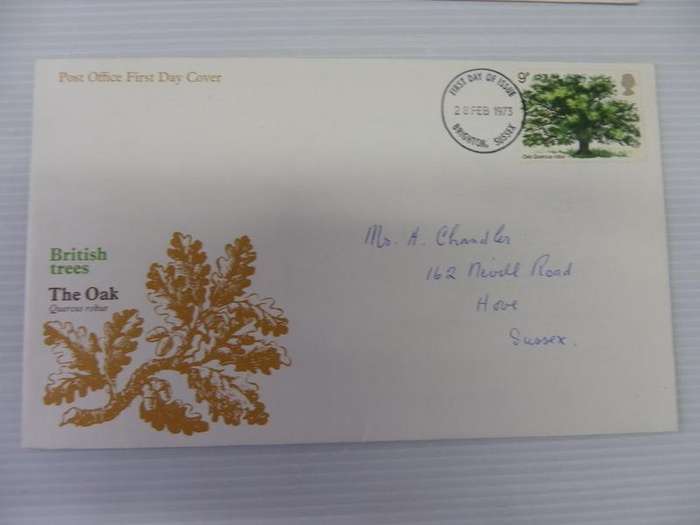 Post Office First Day Cover
FIRST DAY OF ISSUE
28 FEB 1973
BRIGHTON, SUSSEX
9p
Oak Quercus robur
Mr. A. Chandler
162 Nevill Road
Hove
Sussex.
British
trees
The Oak
Quercus robur